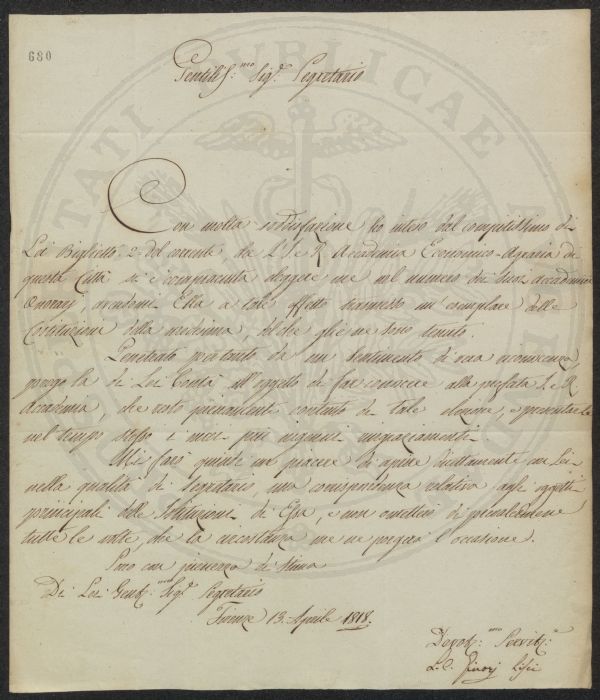 680
Gentiliss:mo Sig.r Segretario
Con molta soddisfazione ho inteso dal compitissimo di
Lei Biglietto 2 del corrente che l'I. e R. Accademia Economico-Agraria di
questa Città si è compiaciuta eleggere me nel numero dei suoi Accademici
Onorarj, avendomi Ella a tale effetto trasmesso un' esemplare delle
Costituzioni della medesima, del che gliene sono tenuto.
Penetrato pertanto da un sentimento di vera riconoscenza
prego la di Lei Bontà all'oggetto di far conoscere alla prefata I. e R.
Accademia, che resto pienamente contento di tale elezione, e presentarle
nel tempo stesso i miei più ringraziamenti.
Mi farò quindi un piacere di aprire direttamente con Lei
nella qualità di Segretario, una corrispondenza relativa agli oggetti
principali delle Istituzioni di Essa, e non ometterò di prevalermene
tutte le volte, che la circostanza me ne porgerà l'occasione.
Sono con pienezza di stima
Di Lei Gentiliss:mo Sig.r Segretario
Firenze 13. Aprile 1818.
Devot:mo Servit:e